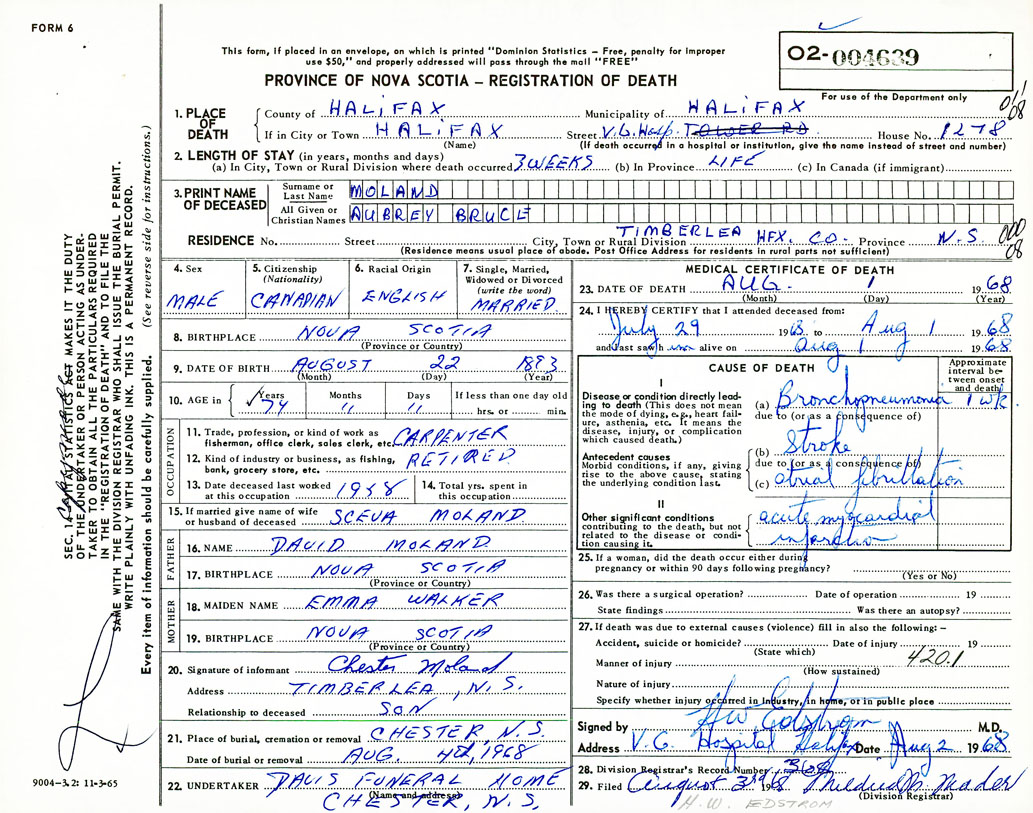 FORM 6
This form, if placed in an envelope, on which is printed "Dominion Statistics – Free, penalty for improper
use $50," and properly addressed will pass through the mail "FREE"
PROVINCE OF NOVA SCOTIA – REGISTRATION OF DEATH
O2-004639
For use of the Department only
1. PLACE OF DEATH
County of HALIFAX Municipality of HALIFAX
If in City or Town HALIFAX Street V.G. Hosp. TOWER RD House No. 1278
(Name) (If death occurred in a hospital or institution, give the name instead of street and number)
2. LENGTH OF STAY (in years, months and days)
(a) In City, Town or Rural Division where death occurred 3 WEEKS (b) In Province LIFE (c) In Canada (if immigrant)
3. PRINT NAME OF DECEASED
Surname or Last Name MOLAND
All Given or Christian Names AUBREY BRUCE
RESIDENCE No. Street City, Town or Rural Division TIMBERLEA HFX. CO. Province N.S.
(Residence means usual place of abode. Post Office Address for residents in rural parts not sufficient)
000
08
4. Sex MALE
5. Citizenship (Nationality) CANADIAN
6. Racial Origin ENGLISH
7. Single, Married, Widowed or Divorced (write the word) MARRIED
8. BIRTHPLACE NOVA SCOTIA
(Province or Country)
9. DATE OF BIRTH AUGUST 22 1893
(Month) (Day) (Year)
10. AGE in Years 74 Months " Days " If less than one day old hrs. or min.
OCCUPATION
11. Trade, profession, or kind of work as fisherman, office clerk, sales clerk, etc. CARPENTER
12. Kind of industry or business, as fishing, bank, grocery store, etc. RETIRED
13. Date deceased last worked at this occupation 1958
14. Total yrs. spent in this occupation
15. If married give name of wife or husband of deceased SCEVA MOLAND
FATHER
16. NAME DAVID MOLAND
17. BIRTHPLACE NOVA SCOTIA
(Province or Country)
MOTHER
18. MAIDEN NAME EMMA WALKER
19. BIRTHPLACE NOVA SCOTIA
(Province or Country)
20. Signature of informant Chester Moland
Address TIMBERLEA, N.S.
Relationship to deceased SON
21. Place of burial, cremation or removal CHESTER N.S.
Date of burial or removal AUG. 4th, 1968
22. UNDERTAKER DAVIS FUNERAL HOME
(Name and address)
CHESTER, N.S.
MEDICAL CERTIFICATE OF DEATH
23. DATE OF DEATH AUG. 1 1968
(Month) (Day) (Year)
24. I HEREBY CERTIFY that I attended deceased from:
July 29 1968 to Aug 1 1968
and last saw h alive on Aug 1 1968
CAUSE OF DEATH
Approximate interval between onset and death
I
Disease or condition directly leading to death (This does not mean the mode of dying, e.g., heart failure, asthenia, etc. It means the disease, injury, or complication which caused death.)
(a) Bronchopneumonia 1 wk
due to (or as a consequence of)
Antecedent causes
Morbid conditions, if any, giving rise to the above cause, stating the underlying condition last.
(b) Stroke
due to (or as a consequence of)
(c) atrial fibrillation
II
Other significant conditions contributing to the death, but not related to the disease or condition causing it.
acute myocardial
infarction
25. If a woman, did the death occur either during
pregnancy or within 90 days following pregnancy?
(Yes or No)
26. Was there a surgical operation? Date of operation 19
State findings Was there an autopsy?
27. If death was due to external causes (violence) fill in also the following: –
Accident, suicide or homicide? Date of injury 19
(State which)
420.1
Manner of injury
(How sustained)
Nature of injury
Specify whether injury occurred in Industry, in home, or in public place
Signed by HW Edstrom M.D.
Address V.G. Hospital Halifax Date Aug 2 1968
28. Division Registrar's Record Number
29. Filed August 3rd 1968
(Division Registrar)
H.W. EDSTROM
SEC. 14 MAKES IT THE DUTY
OF THE UNDERTAKER OR PERSON ACTING AS UNDER-
TAKER TO OBTAIN ALL THE PARTICULARS REQUIRED
IN THE "REGISTRATION OF DEATH" AND TO FILE THE
SAME WITH THE DIVISION REGISTRAR WHO SHALL ISSUE THE BURIAL PERMIT.
WRITE PLAINLY WITH UNFADING INK. THIS IS A PERMANENT RECORD.
Every item of information should be carefully supplied. (See reverse side for instructions.)
9004–3.2: 11-3-65